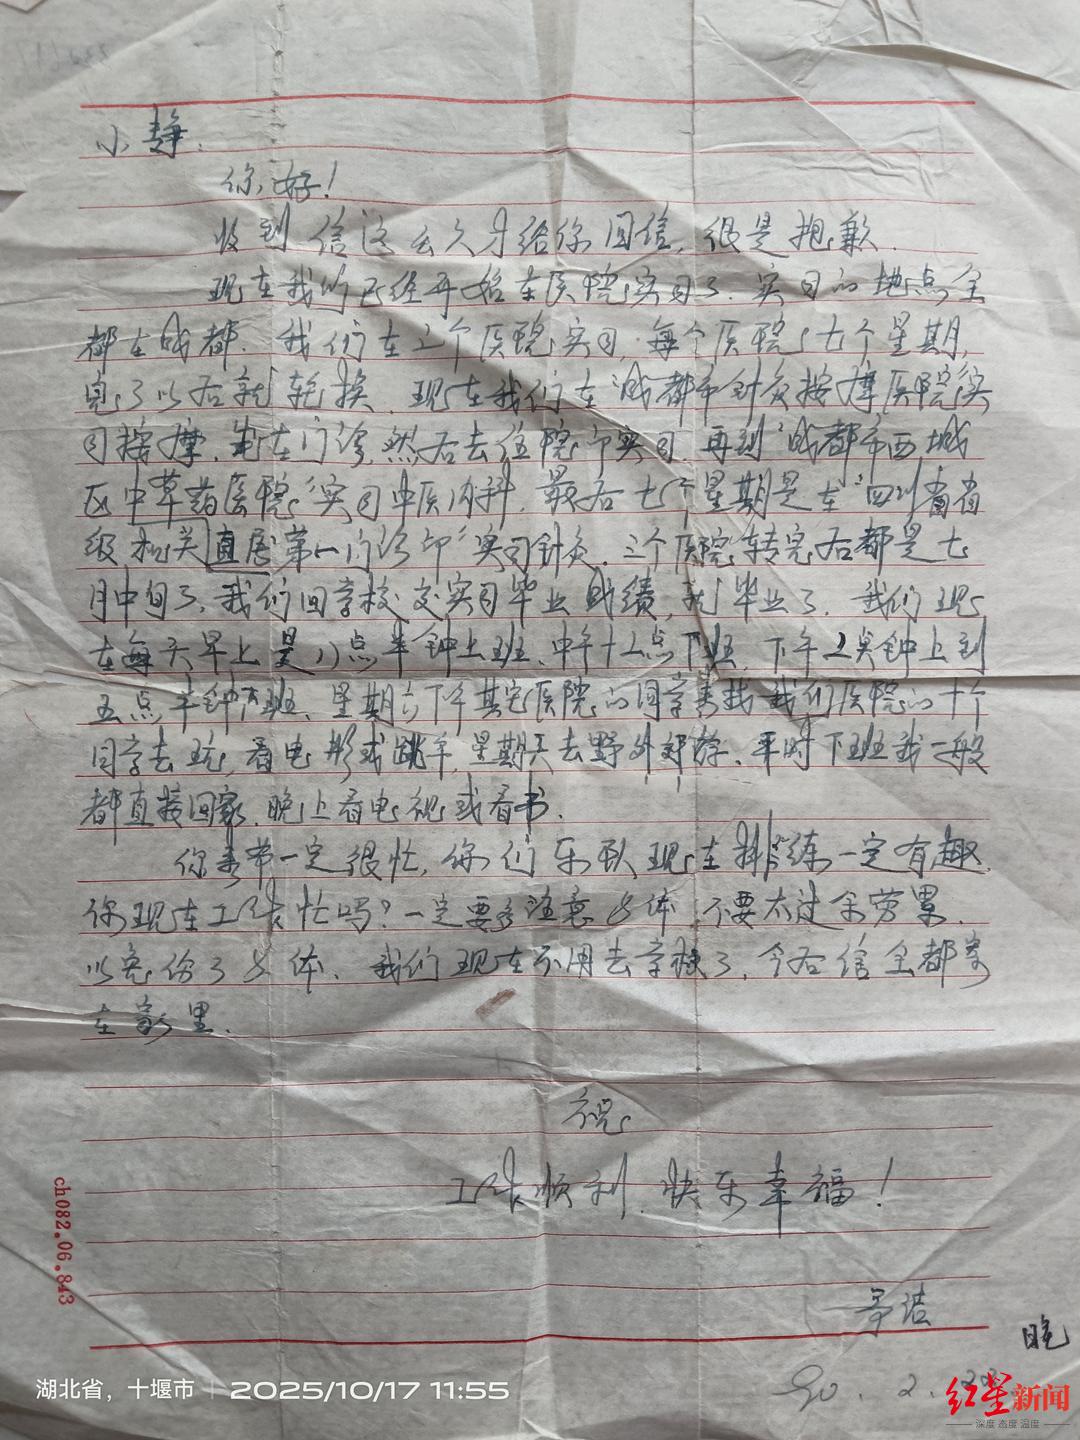 小静.
你好!
收到信这么久才给你回信, 很是抱歉.
现在我们已经开始在医院实习了. 实习的地点全
都在成都. 我们在三个医院实习, 每个医院七个星期,
完了以后就轮换. 现在我们在"成都市针灸按摩医院"实
习按摩. 先在门诊, 然后去住院部实习. 再到"成都市西城
区中草药医院"实习中医内科. 最后七个星期是在"四川省省
级机关直属第一门诊部"实习针灸. 三个医院转完后都是七
月中旬了, 我们回学校交实习毕业成绩, 就毕业了. 我们现
在每天早上是八点半钟上班. 中午十二点下班, 下午2点钟上到
五点半钟下班. 星期六下午其它医院的同学来找我们医院的十个
同学去玩, 看电影或跳午, 星期天去野外郊游. 平时下班我一般
都直接回家. 晚上看电视或看书.
你春节一定很忙, 你们乐队现在排练一定有趣.
你现在工作忙吗? 一定要多注意身体. 不要太过余劳累.
以免伤了身体. 我们现在不用去学校了, 今后信全都寄
在家里.
祝
工作顺利. 快乐幸福!
洁
晚
90. 2.
ch082.06.843
湖北省, 十堰市 | 2025/10/17 11:55
红星新闻
深度 态度 温度